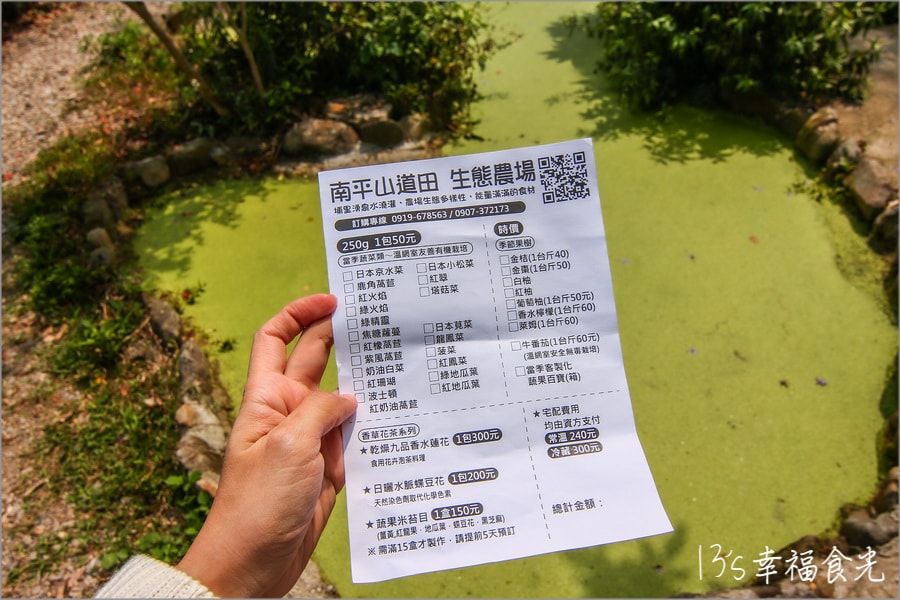 南平山道田 生態農場
埔里湧泉水澆灌、農場生態多樣性、能量滿滿的食材
訂購專線 0919-678563 / 0907-372173
250g 1包50元
當季蔬菜類～溫網室友善有機栽培
日本京水菜
鹿角萵苣
紅火焰
綠火焰
綠精靈
焦糖蘿蔓
紅橡萵苣
紫風萵苣
奶油白菜
紅珊瑚
波士頓
紅奶油萵苣
日本小松菜
紅翠
塔菇菜
日本莧菜
龍鳳菜
菠菜
紅鳳菜
綠地瓜葉
紅地瓜葉
時價
季節果樹
金桔(1台斤40)
金棗(1台斤50)
白柚
紅柚
葡萄柚(1台斤50元)
香水檸檬(1台斤60)
萊姆(1台斤60)
牛番茄(1台斤60元)
(溫網室安全無毒栽培)
當季客製化
蔬果百寶(箱)
香草花茶系列
★乾燥九品香水蓮花 1包300元
食用花卉泡茶料理
★日曬水脈蝶豆花 1包200元
天然染色劑取代化學色素
★蔬果米苔目 1盒150元
(薑黃,紅龍果、地瓜葉、蝶豆花、黑芝麻)
※ 需滿15盒才製作，請提前5天預訂
★宅配費用
均由買方支付
常溫 240元
冷藏 300元
總計金額：
13's幸福食光